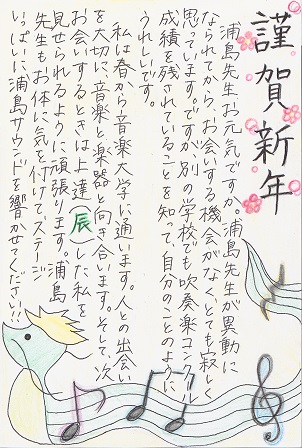 謹賀新年
浦島先生お元気ですか。浦島先生が異動に
なられてから、お会いする機会がなく、とても寂しく
思っています。ですが別の学校でも吹奏楽コンクール
成績を残されていることを知って、自分のことのように
うれしいです。
私は春から音楽大学に通います。人との出会い
を大切に、音楽と楽器と向き合います。そして、次
お会いするときは上達(辰)した私を
見せられるように頑張ります。浦島
先生もお体に気を付けて、ステージ
いっぱいに浦島サウンドを響かせてください!!